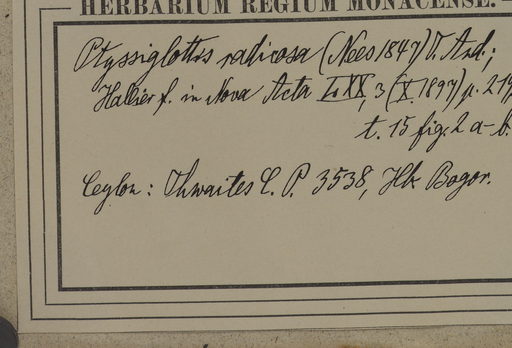 HERBARIUM REGIUM MONACENSE.
Ptyssiglottis radicosa (Nees 1847) T. And.;
Hallier f. in Nova Acta LXX, 3 (X. 1897) p. 219
t. 15 fig. 2 a-b.
Ceylon: Thwaites C. P. 3538, Hb. Bogor.